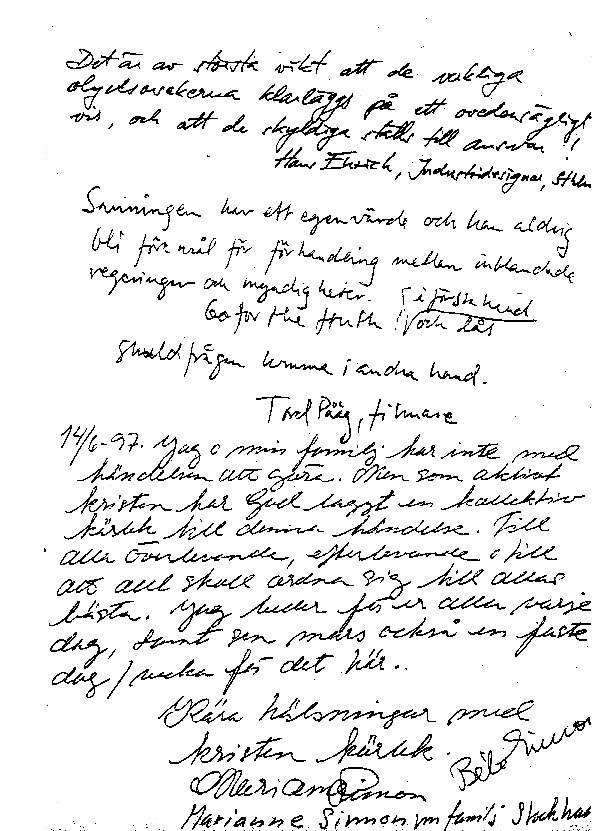 Det är av största vikt att de verkliga
olycksorsakerna klarläggs på ett ovedersägligt
vis, och att de skyldiga ställs till ansvar!!
Hans Ehrich, Industridesigner, Sthlm
Sanningen har ett egenvärde och kan aldrig
bli föremål för förhandling mellan inblandade
regeringar och myndigheter. i första hand
Go for the truth! och låt
skuldfrågan komma i andra hand.
Tord Pååg, filmare
14/6-97. Jag o min familj har inte med
händelsen att göra. Men som aktivt
kristen har Gud laggt en kollektiv
kärlek till denna händelse. Till
alla överlevande, efterlevande o till
att allt skall ordna sig till allas
bästa. Jag beder för er alla varje
dag, samt sen mars också en faste
dag/vecka för det här..
Kära hälsningar med
kristen kärlek.
Marianne Simon
Marianne Simon m familj Stockholm